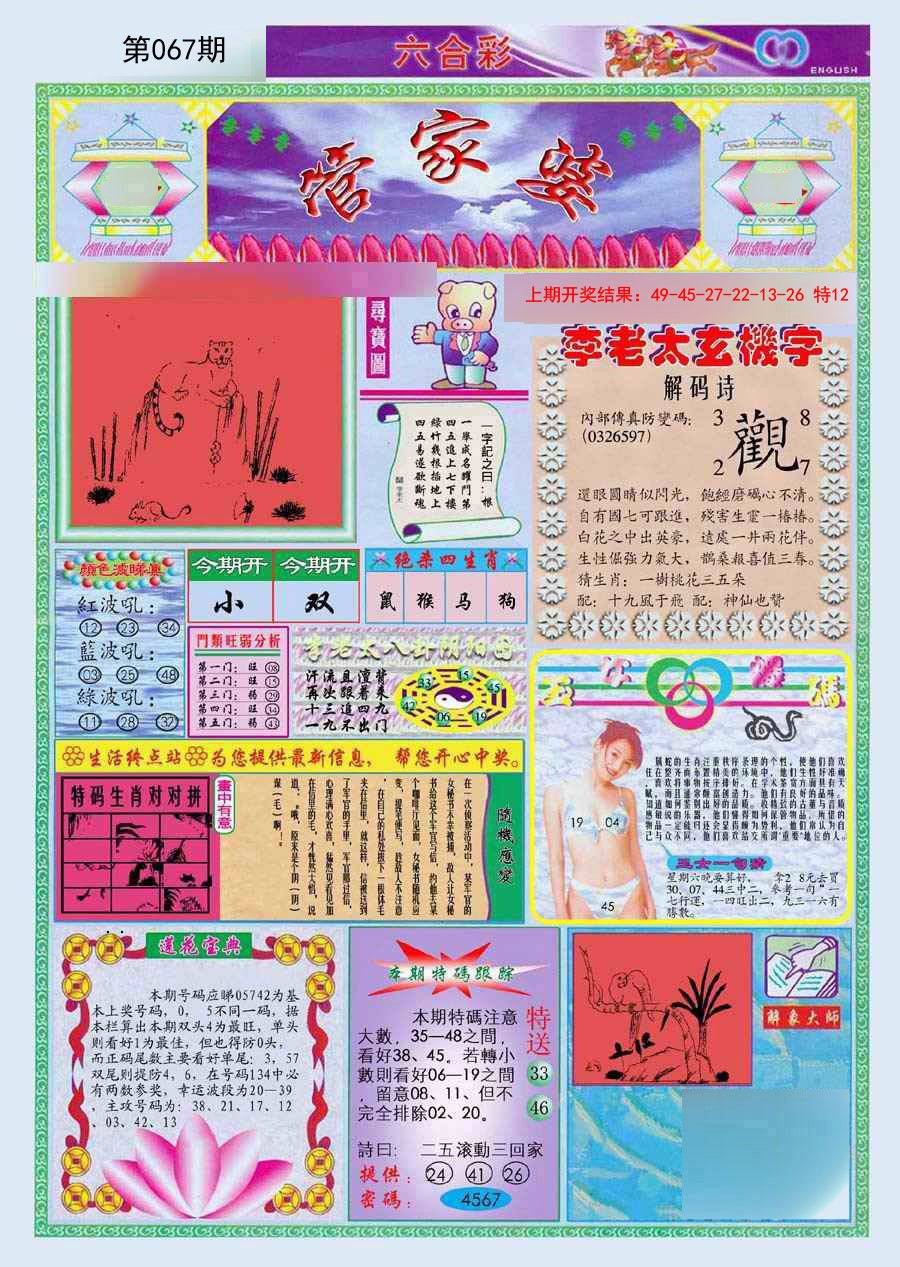 第067期
六合彩
ENGLISH
管家婆
上期开奖结果：49-45-27-22-13-26 特12
尋寶圖
一字記之曰：恨
一舉成名躍門第
四五追上七下樓
綠竹幾根插地上
四五易遂欲斷魂
李老太玄機字
解码诗
內部傳真防變碼:
(0326597)
3 8
觀
2 7
還眼圓睛似閃光，飽經磨礪心不清。
自有國七可跟進，殘害生靈一樁樁。
白花之中出英豪，遠處一井兩花伴。
生性倔強力氣大，鹊桑報喜值三春。
猜生肖：一樹桃花三五朵
配：十九風于飛 配：神仙也贊
顏色波睇真
紅波吼：
12 23 34
藍波吼：
03 25 48
綠波吼：
11 28 32
今期开 今期开
小 双
绝杀四生肖
鼠 猴 马 狗
門類旺弱分析
第一门：旺 08
第二门：旺 15
第三门：弱 29
第四门：旺 34
第五门：弱 43
李老太八卦阴阳图
汗流且澶梦
再次跟着来
十三追四九
一九不出门
33 15 45
42 06 19
生活终点站 为您提供最新信息， 帮您开心中奖。
特码生肖对对拼
畫中有意
隨機應變
在一次侦察活动中，某军官的
女秘书不幸被捕。敌人让女秘
书给这个军官写信，约他去某
个咖啡厅见面，女秘书随机应
变，提笔便写，趁敌人不注意
，在自己的私处拔下一根体毛
夹在信里，就这样，信被送到
了军官的手里，军官顺过信，
心理满心欢喜，猛然见看见加
在信里的毛，才恍然大悟，说
道，“哦，原来是个阴（阴）
谋（毛）啊。！
19 04
45
属蛇的生肖注重秩序条理的个性，使他们喜欢
玉女一句猜
星期六晚要算好， 拿2 8元去買
30、07、44三中二，參考一句“一
七行運，一四旺出二，九三一六有
勝數。
蓮花宝典
本期号码应睇05742为基
本上奖号码，0， 5不同一码，据
本栏算出本期双头4为最旺，单头
则看好1为最佳，但也得防0头，
而正码尾数主要看好单尾：3，57
双尾则提防4，6，在号码134中必
有两数参奖，幸运波段为20—39
，主攻号码为：38、21、17、12
、03、42、13
本期特碼跟踪
本期特碼注意
大數，35—48之間，
看好38、45。若轉小
數則看好06—19之間
，留意08、11、但不
完全排除02、20。
特送
33
46
詩曰: 二五滚動三回家
提供: 24 41 26
密碼: 4567
解象大师